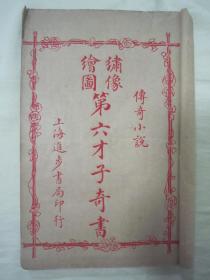 傳奇小說
繡像
繪圖
第六才子奇書
上海進步書局印行